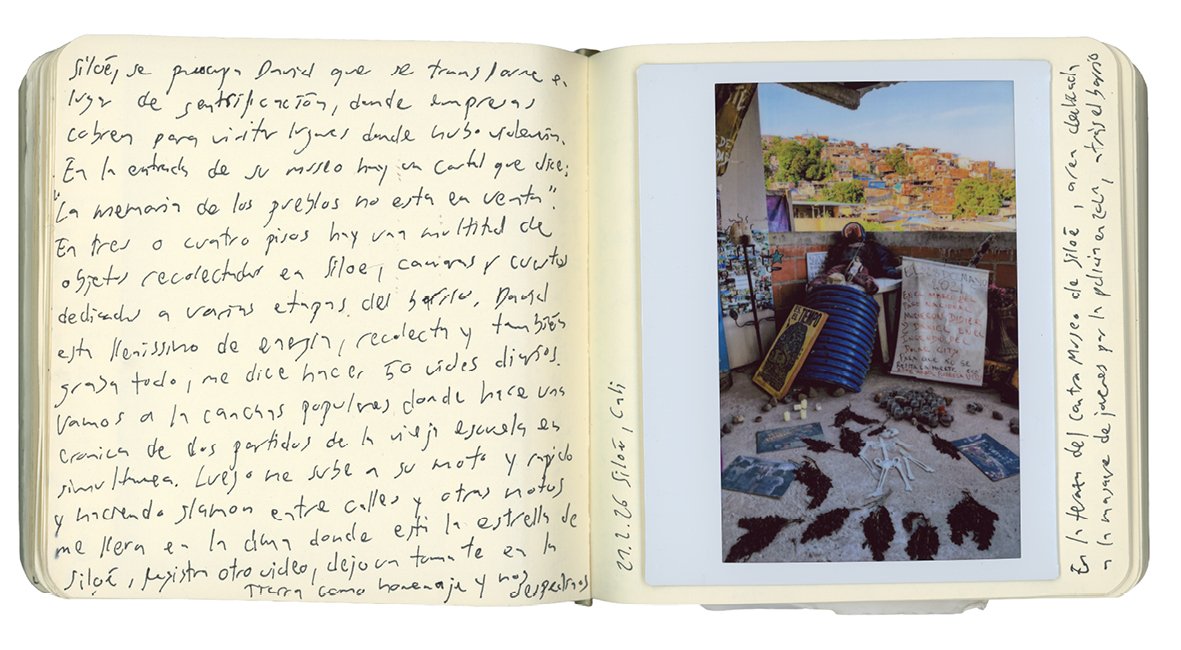 Siloé, se preocupa David que se transforme en
lugar de gentrificación, donde empresas
cobren para visitar lugares donde hubo violencia.
En la entrada de su museo hay un cartel que dice:
"La memoria de los pueblos no esta en venta".
En tres o cuatro pisos hay una multitud de
objetos recolectados en Siloé, camisas y cuartos
dedicados a varias etapas del barrio. David
esta llenissimo de energia, recolecta y también
graba todo, me dice hacer 50 vides diarios.
Vamos a la canchas populares donde hace una
cronica de dos partidos de la vieja escuela en
simultanea. Luego me sube a su moto y rapido
y haciendo slamon entre calles y otras motos
me lleva en la cima donde está la estrella de
Siloé, registra otro video, dejo un tomate en la
tierra como homenaje y nos despedimos
21.2.26 Siloé, Cali
EL TEMPO
EL 28 DE MAYO
2021
EN EL MARCO DEL
PARO NACIONAL
MURIERON DIDIER
Y DANIEL EN EL
INCENDIO DEL
DOLLAR CITY
PARA QUE NO SE
REPITA LA MUERTE
En la terraza del Contra Museo de Siloé, area dedicada
a la masacre de jovenes por la policia en 2021, atrás el barrio